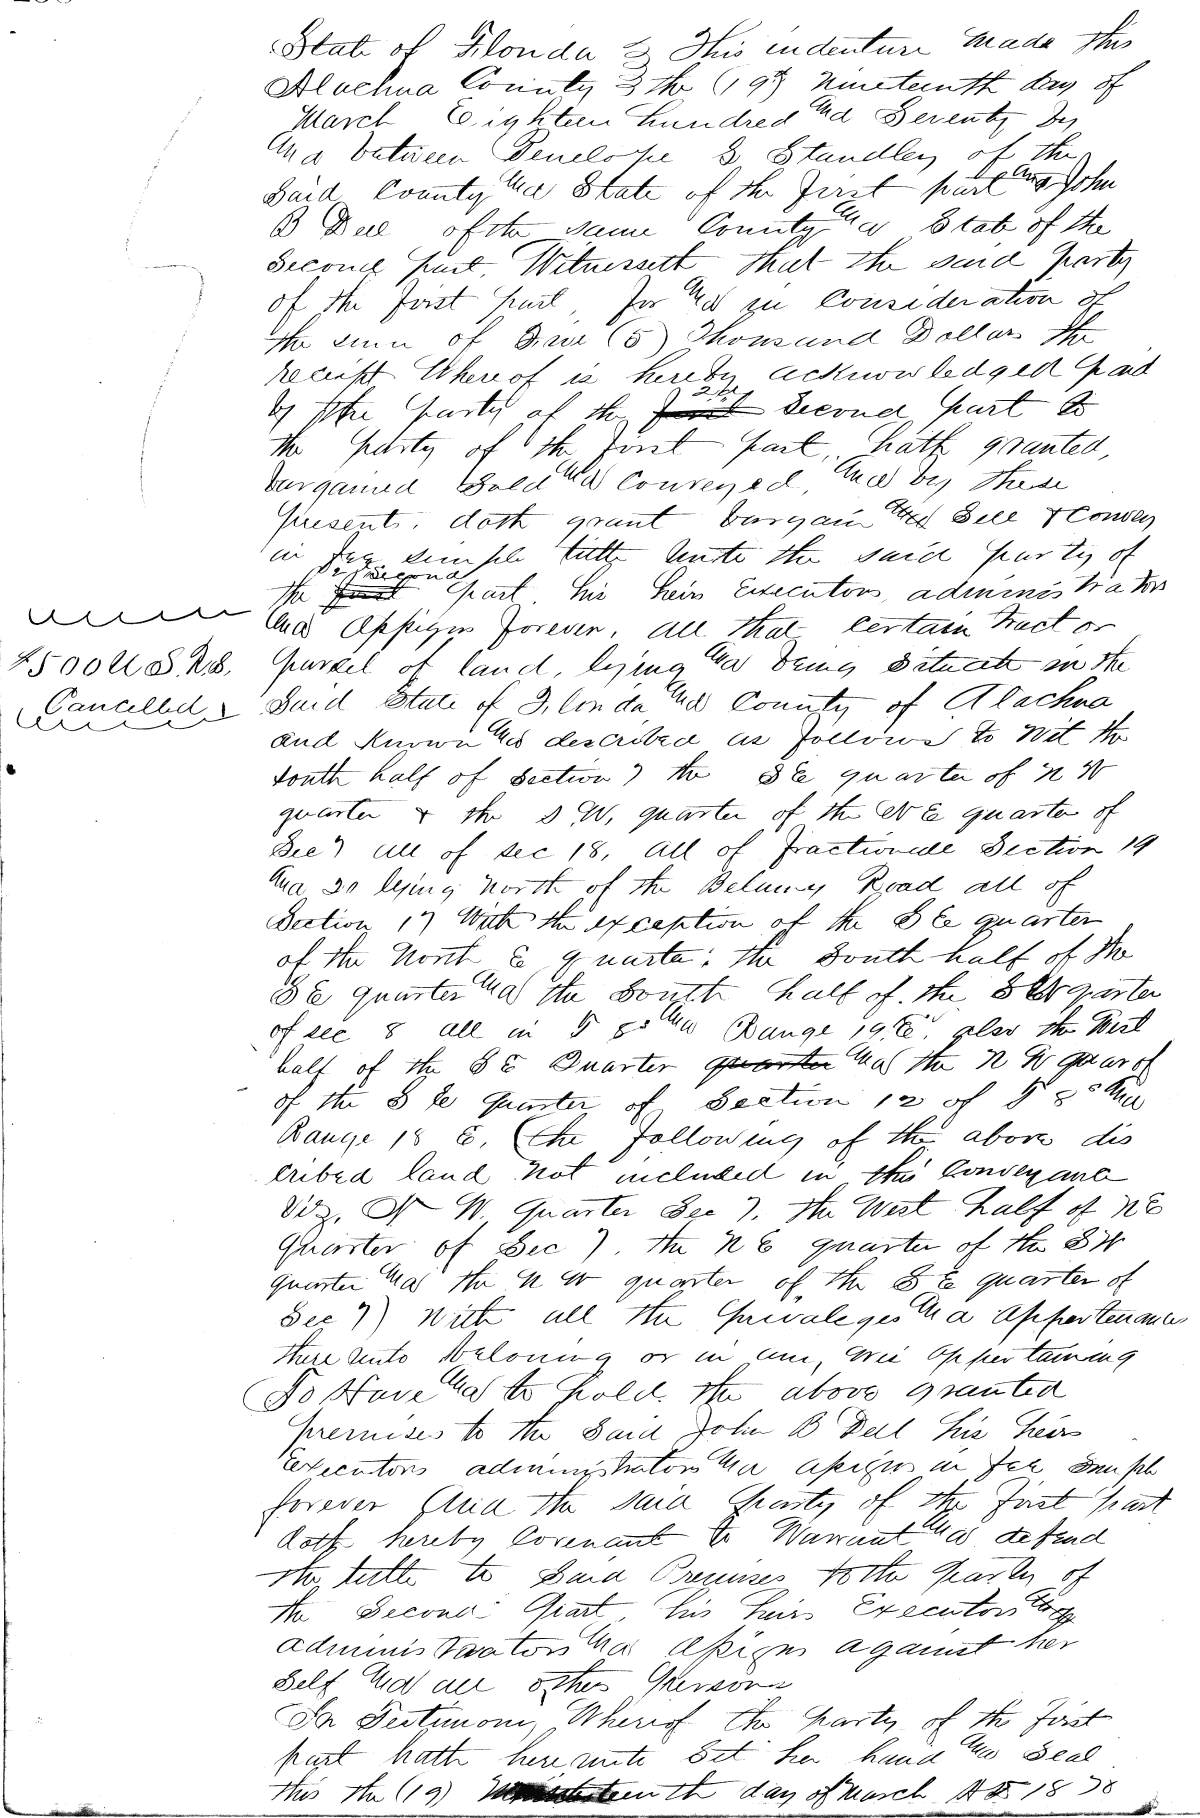 State of Florida } This indenture made this
Alachua County } the (19th) nineteenth day of
March Eighteen hundred and Seventy by
and between Penelope G Standley of the
Said County and State of the first part and John
B Dell of the same County and State of the
Second part. Witnesseth that the said party
of the first part for and in Consideration of
the sum of Five (5) Thousand Dollars the
receipt Whereof is hereby acknowledged paid
by the party of the first 2d second part to
the party of the first part, hath granted,
bargained Sold and Conveyed, and by these
presents. doth grant bargain and Sell & Convey
in fee simple title unto the said party of
the first second part his heirs Executors administrators
and assigns forever, all that certain tract or
parsel of land, lying and being Situate in the
Said State of Florida and County of Alachua
and Known and described as follows to Wit the
South half of Section 7 the SE quarter of N W
quarter & the S W, quarter of the N E quarter of
Sec 7 all of sec 18, all of fractionall Section 19
and 20 lying North of the Belamy Road all of
Section 17 With the exception of the S E quarter
of the North E quarter; the South half of the
S E quarter and the South half of the S W quarter
of sec 8 all in T 8 S and Range 19 E. also the West
half of the S E Quarter quarter and the N W quar of
of the S E quarter of Section 12 of T 8 S and
Range 18 E, (the following of the above dis
cribed land not included in this Conveyance
Viz, N W, quarter Sec 7, the West half of N E
Quarter of Sec 7, the N E quarter of the S W
quarter and the N W quarter of the S E quarter of
Sec 7) With all the privaleges and appertenances
there unto beloning or in any wise appertaining
To Have and to hold the above granted
premises to the Said John B Dell his heirs
Executors administrators and assigns in fee simple
forever And the said party of the first part
doth hereby Covenant to Warrant and defend
the title to Said Premises to the party of
the Second part, his heirs Executors
administrators and assigns against her
Self and all other persons
In Testimony Whereof the party of the first
part hath hereunto Set her hand and Seal
this the (19) teenth day of March AD 1870
$5 00 U S. R. S.
Cancelled